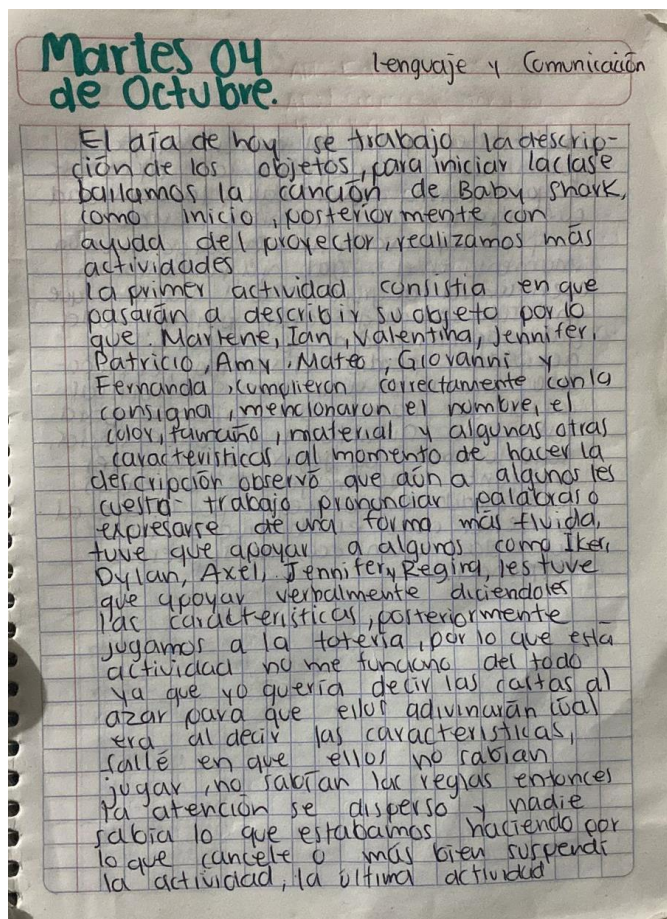 Martes 04
de Octubre.
lenguaje y Comunicación
El día de hoy se trabajo la descrip-
ción de los objetos, para iniciar la clase
bailamos la canción de Baby Shark,
como inicio, posteriormente con
ayuda del proyector, realizamos más
actividades
la primer actividad consistia en que
pasarán a describir su objeto por lo
que. Marlene, Ian, Valentina, Jennifer,
Patricio, Amy, Mateo, Giovanni y
Fernanda, cumplieron correctamente con la
consigna, mencionaron el nombre, el
color, tamaño, material y algunas otras
características, al momento de hacer la
descripción observó que aún a algunos les
cuesta trabajo pronunciar palabras o
expresarse de una forma más fluida,
tuve que apoyar a algunos como Iker,
Dylan, Axel, Jennifer y Regina, les tuve
que apoyar verbalmente diciendoles
las características, posteriormente
jugamos a la lotería, por lo que está
actividad no me funciono del todo
ya que yo quería decir las cartas al
azar para que ellos adivinarán cual
era al decir las características,
fallé en que ellos no sabían
jugar, no sabían las reglas entonces
la atención se disperso y nadie
sabia lo que estabamos haciendo por
lo que cancele o más bien suspendi
la actividad, la última actividad